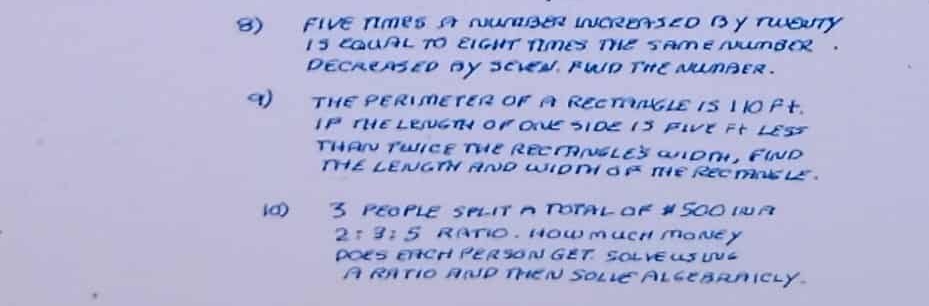 8) FIVE TIMES A NUMBER INCREASED BY TWENTY
IS EQUAL TO EIGHT TIMES THE SAME NUMBER
DECREASED BY SEVEN. FIND THE NUMBER.
9) THE PERIMETER OF A RECTANGLE IS 110 Ft.
IF THE LENGTH OF ONE SIDE IS FIVE Ft LESS
THAN TWICE THE RECTANGLE'S WIDTH, FIND
THE LENGTH AND WIDTH OF THE RECTANGLE.
10) 3 PEOPLE SPLIT A TOTAL OF $500 IN A
2:3:5 RATIO. HOW MUCH MONEY
DOES EACH PERSON GET. SOLVE USING
A RATIO AND THEN SOLVE ALGEBRAICLY.